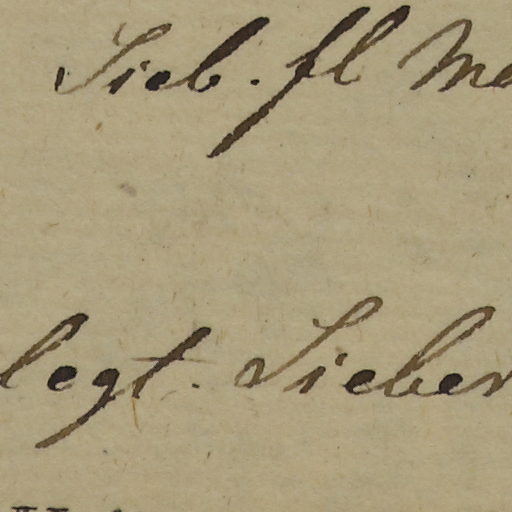 Sieb. fl
legt. Sieber